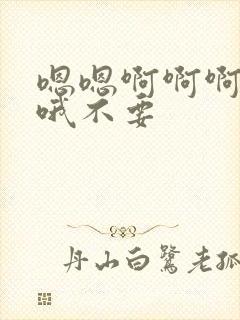 嗯嗯啊啊啊
哦不要
丹山白鹭老孤